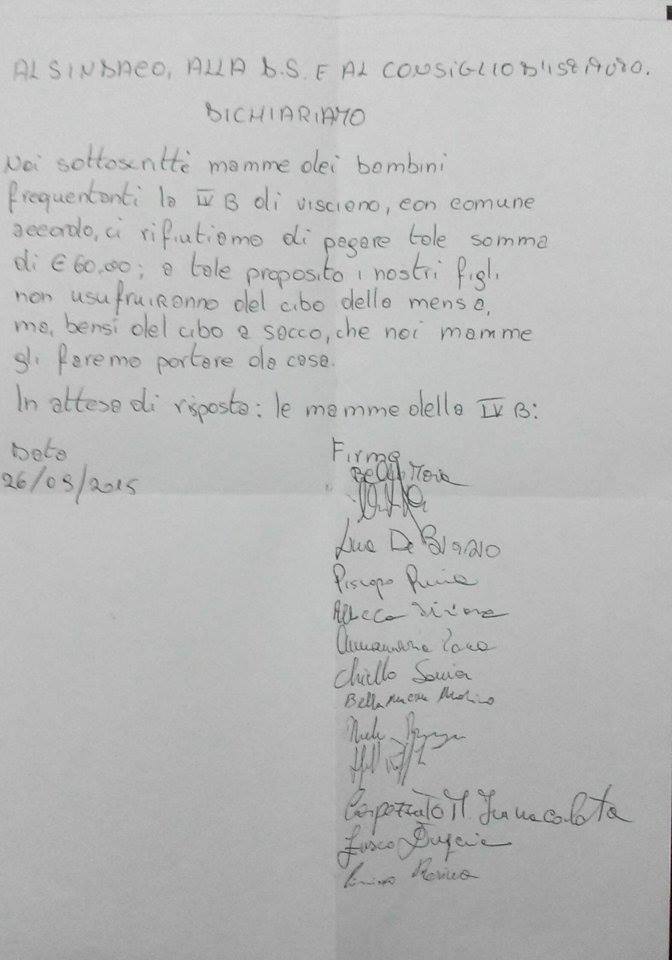 AL SINDACO, ALLA D.S. E AL CONSIGLIO D'ISTITUTO.
DICHIARIAMO
Noi sottoscritte mamme dei bambini
frequentanti la IV B di visciano, con comune
accordo, ci rifiutiamo di pagare tale somma
di € 60,00; a tale proposito i nostri figli
non usufruiranno del cibo della mensa,
ma, bensì del cibo a sacco, che noi mamme
gli faremo portare da casa.
In attesa di risposta: le mamme della IV B:
Data
Firma
26/09/2015
Maria
De
Piscopo
Annamaria
Chiello Sonia
Carpezzato M. Immacolata
Fusco